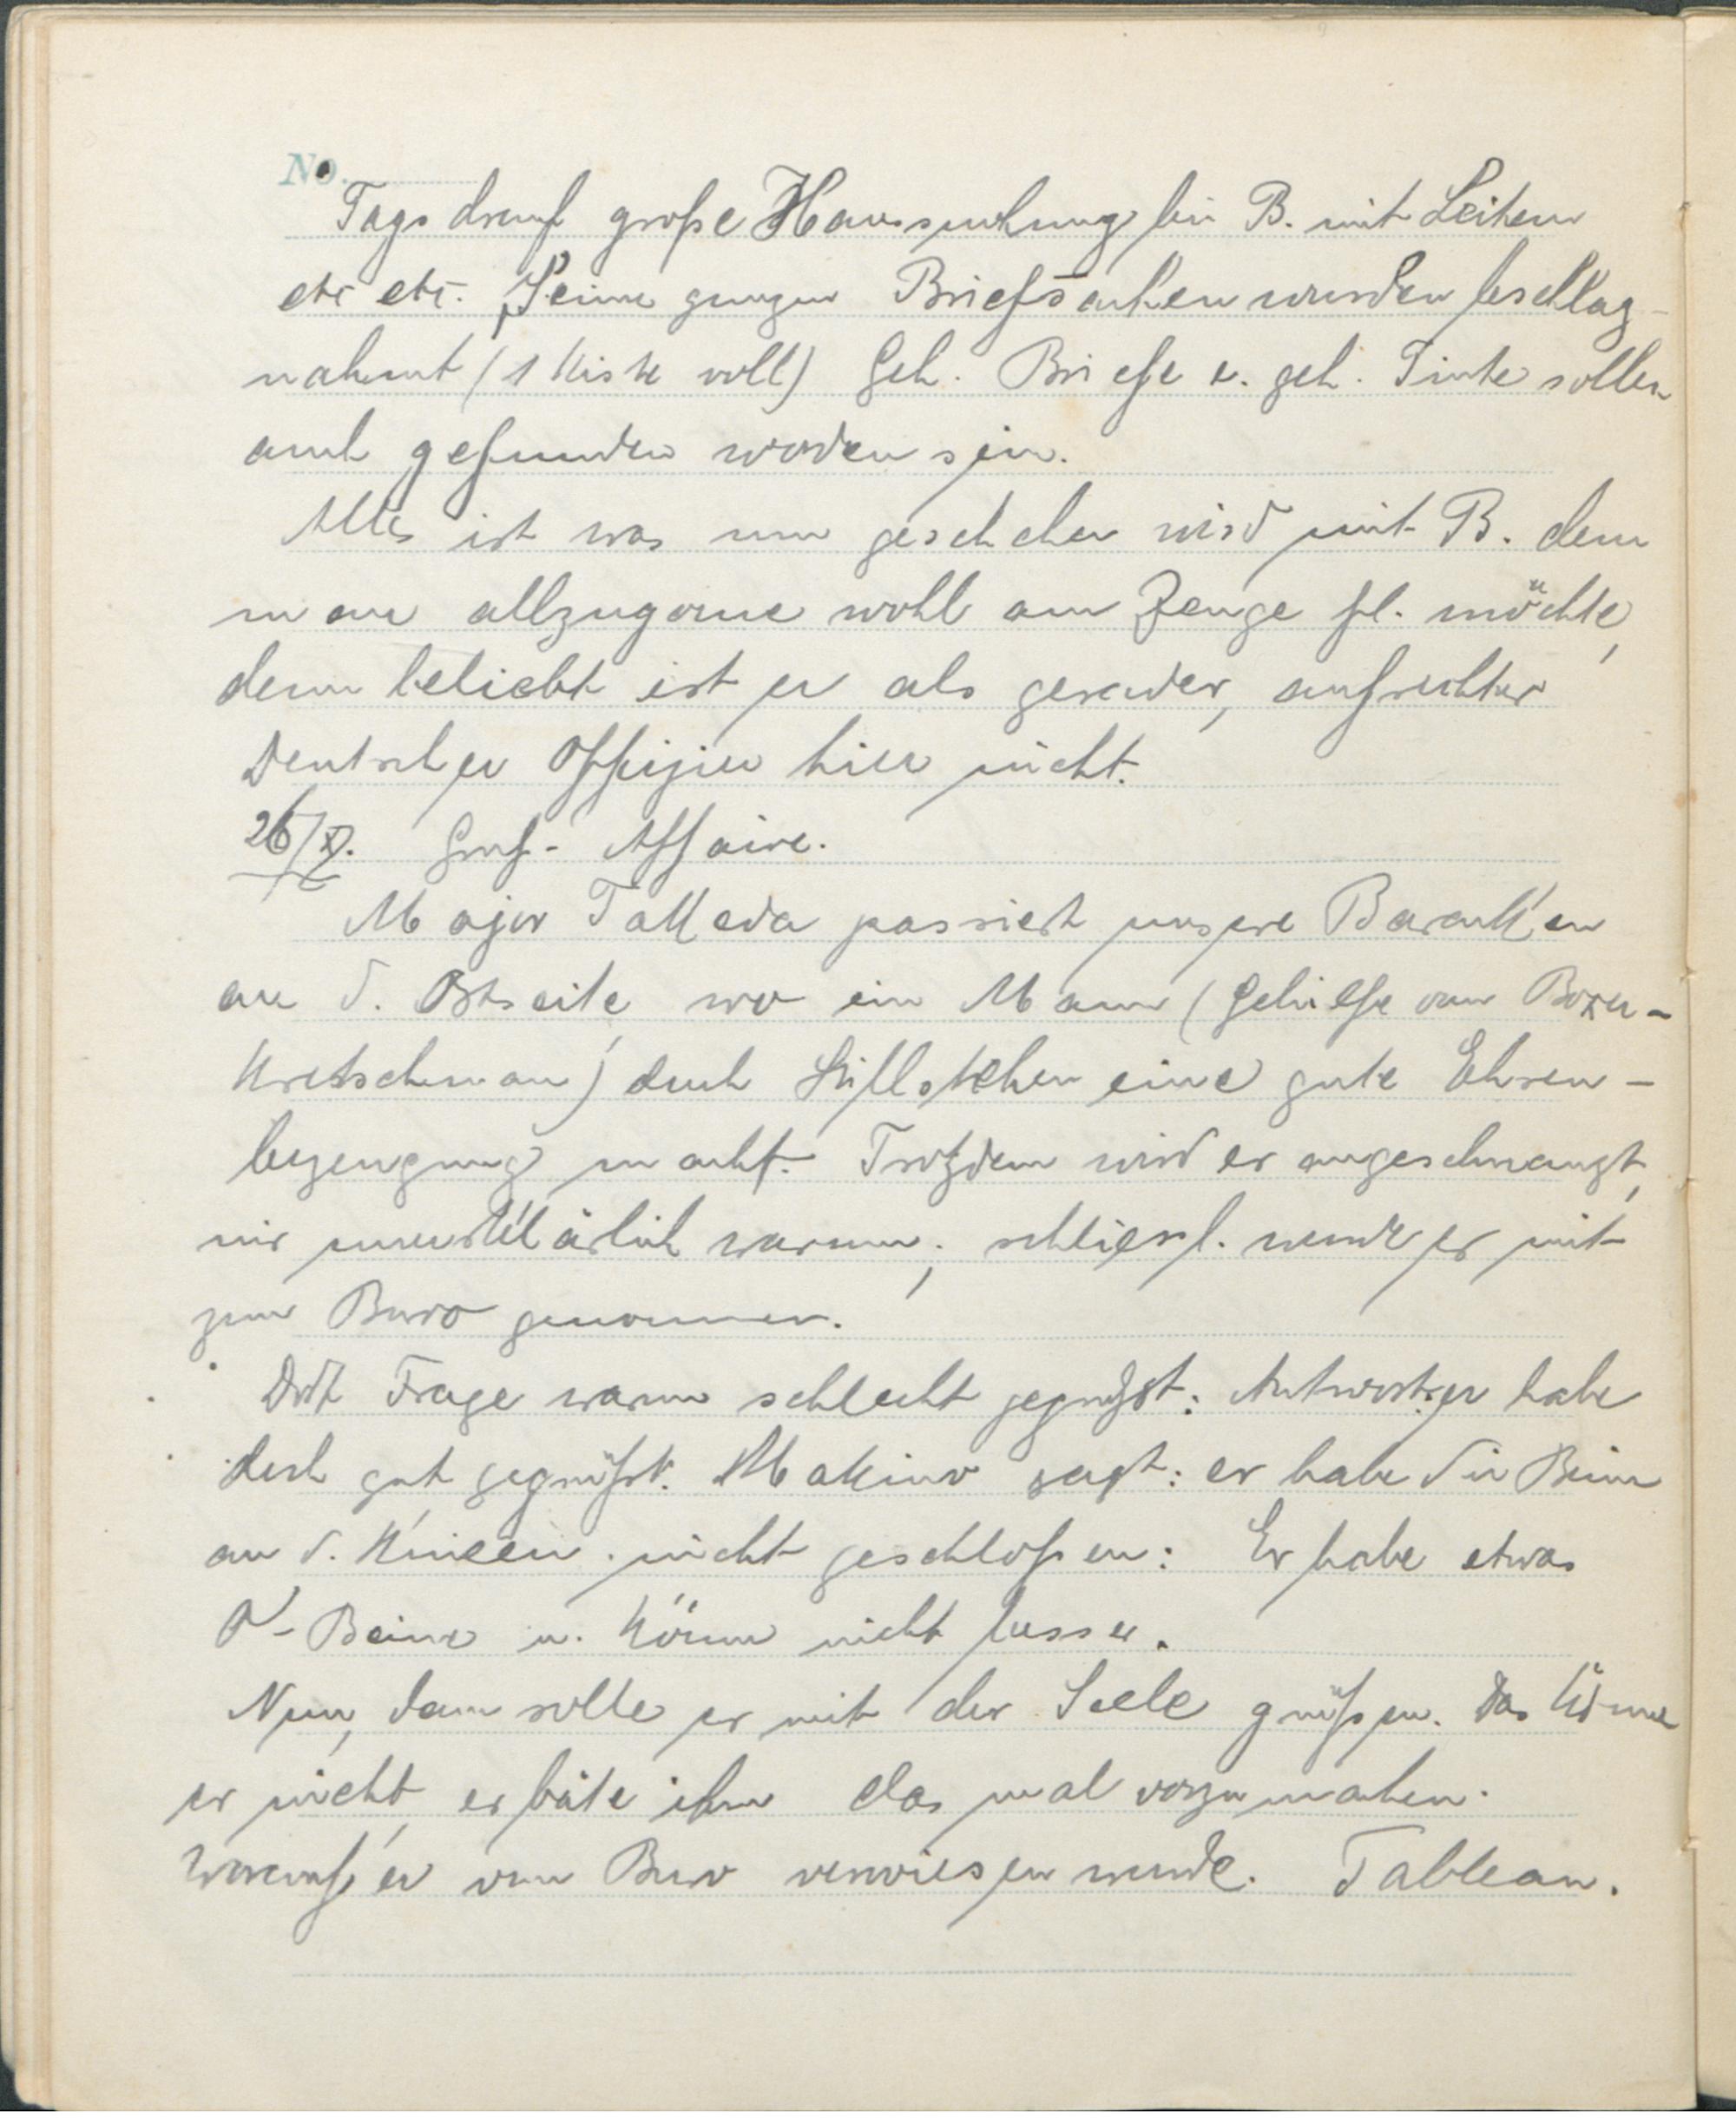 No.
Tags drauf große Haussuchung bei B. mit Leitern
etc etc. Seine ganzen Briefsachen wurden beschlag-
nahmt (1 Kiste voll) Geh. Briefe u. geh. Tinte sollen
auch gefunden worden sein.
Alles ist was nun geschehen wird mit B. dem
man allzugerne wohl am Zeuge fl. möchte,
denn beliebt ist er als gerader, aufrechter
Deutscher Offizier hier nicht.
26/X. Gruß-Affaire.
Major Takeda passiert unsere Baracken
an d. Ostseite, wo ein Mann (Gehilfe von Boxer-
Kretschman) durch Stillstehen eine gute Ehren-
bezeugung macht. Trotzdem wird er angeschnauzt,
mir unerklärlich warum; schliessl. wurde er mit
zum Buro genommen.
Dort Frage warum schlecht gegrüßt: Antwort: er habe
doch gut gegrüßt. Makino sagt: er habe die Beine
an d. Knieen nicht geschloßen: Er habe etwas
O-Beine u. könne nicht besser.
Nun, dann solle er mit der Seele grüßen. Das könne
er nicht, er bäte ihm das mal vorzumachen.
Worauf er vom Buro verwiesen wurde. Tableau.